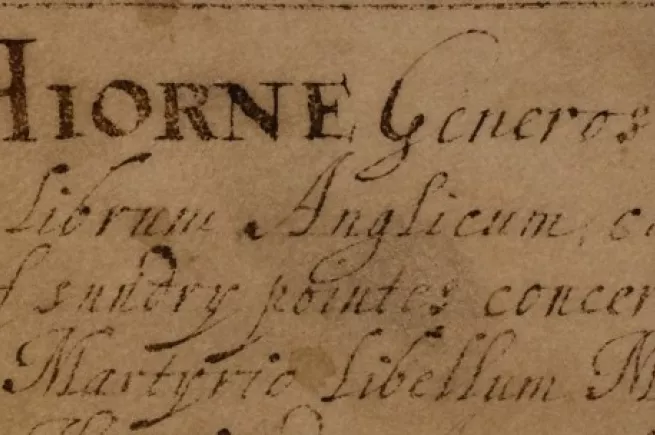 HIORNE Generos
Librum Anglicum, c
f sundry pointes concer
Martyrio Libellum M